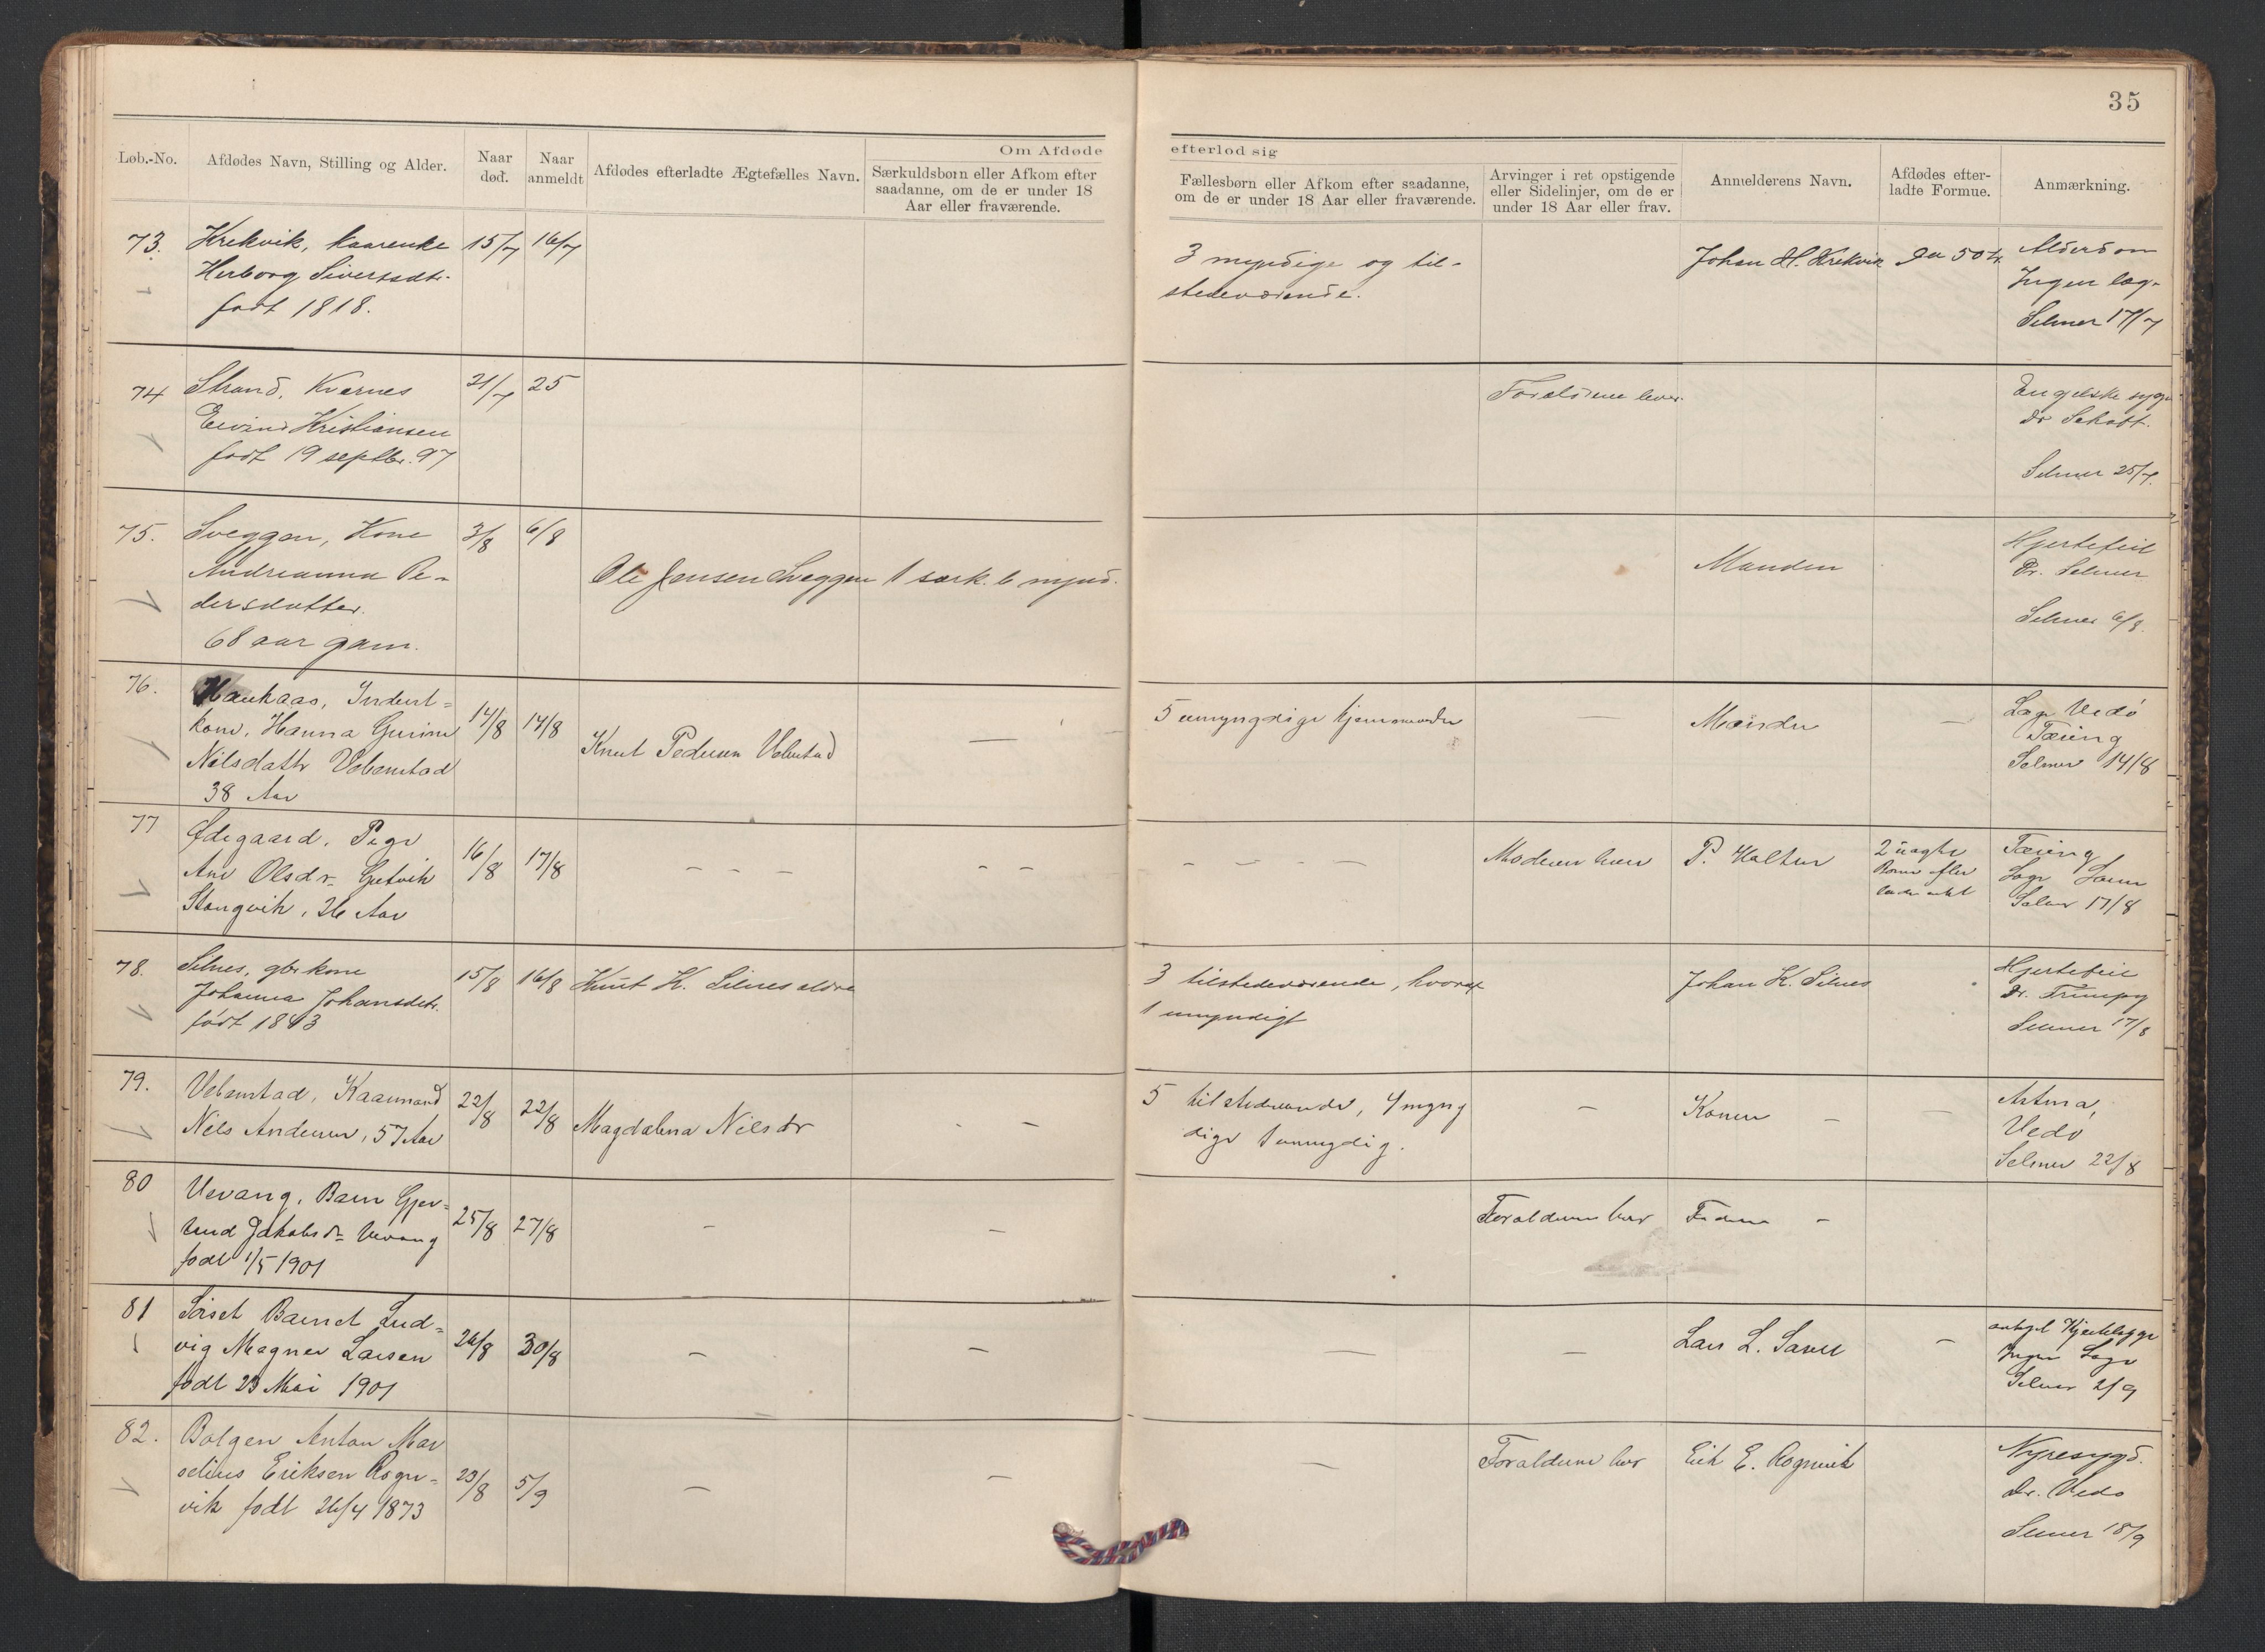 35
Løb.-No.
Afdødes Navn, Stilling og Alder.
Naar
død.
Naar
anmeldt
Om Afdøde
Afdødes efterladte Ægtefælles Navn.
Særkuldsbørn eller Afkom efter
saadanne, om de er under 18
Aar eller fraværende.
efterlod sig
Fællesbørn eller Afkom efter saadanne,
om de er under 18 Aar eller fraværende.
Arvinger i ret opstigende
eller Sidelinjer, om de er
under 18 Aar eller frav.
Anmelderens Navn.
Afdødes efter-
ladte Formue.
Anmærkning.
73.
Krekvik, kaarenke
Herborg Sivertsdtr.
født 1818.
15/7
16/7
3 myndige og til-
stedeværende.
Johan H. Krekvik
50 kr.
Alderdom
Ingen læge
Selmer 17/7
74
Strand, Kvernes
Eivind Kristiansen
født 19 septbr. 97
21/7
25
Forældrene lever
Engelske syge
Dr Schøtt.
Selmer 25/7.
75.
Sveggen, Kone
Andrianna Pe-
dersdatter.
68 aar gam.
3/8
6/8
Ole Jensen Sveggen
1 særk. b mynd.
Manden
Hjertefeil
Dr. Selmer
Selmer 6/8.
76.
Haukaas, Inderst-
kone, Hanna Gurine
Nilsdattr Vebenstad
38 Aar
14/8
14/8
Knut Pedersen Vebenstad
—
5 umyngdige hjemmeværende
—
Manden
—
Læge Vedø
Tæring
Selmer 14/8
77
Ødegaard, Pige
Ane Olsdr. Gjetvik
Stangvik, 26 Aar
16/8
17/8
- - -
- -
- - - -
Moderen lever
P. Halten
2 uægte
Børn efter
Tæring
Læge
Selmer 17/8
78.
Silnes, gbr kone
Johanna Johansdtr.
født 1843
15/8
16/8
Knut K. Silnes ældre
3 tilstedeværende, hvoraf
1 umyndigt
Johan K. Silnes
Hjertefeil
Dr. Trumpy
Selmer 17/8
79.
Vebenstad, Kaarmand
Nils Andersen, 57 Aar
22/8
22/8
Magdalena Nilsdr
- -
5 tilstedværende, 4 myng
dige 1 umyngdig.
-
Konen -
-
Astma,
Vedø
Selmer 22/8
80
Vevang, Barn Gjer-
trud Jakobsdr Vevang
født 1/5 1901
25/8
27/8
-
-
Forældrene lever
Faderen -
81
Sørset Barnet Lud-
vig Magner Larsen
født 23 Mai 1901
26/8
30/8
-
-
—
-
-
antagel. Hjertelyge
Ingen Læge
Selmer 2/9
82.
Bolgen Anton Mar
selius Eriksen Rogn-
vik født 26/4 1873
23/8
5/9
—
—
—
Forældrene lever
Erik E. Rognvik
Nyresygd.
Dr. Vedø
Selmer 18/9